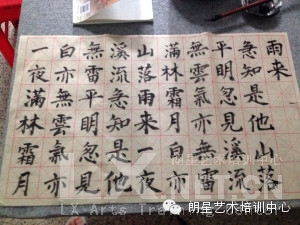 一夜滿林霜月
白亦無雲氣亦
無雷平明忽見
溪流急知是他
山落雨来一夜
滿林霜月白亦
無雲氣亦無雷
平明忽見溪流
急知是他山落
雨来
朗星艺术培训中心
LX Arts Training Center
朗星艺术培训中心